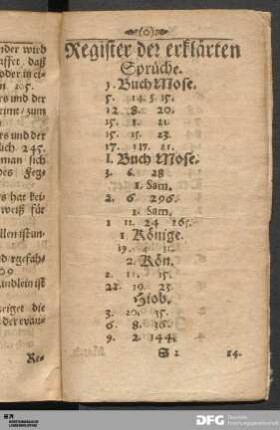 nder wird
affet, daß
oder in ei-
n 205.
rs und der
eimt/ zum
rs und der
lich 245.
man sich
des Feg-
rs hat kei-
weiß für
llen ist un-
nd
09
undlein ist
eriget die
der wan-
Re-
(o)
Register der erklärten
Sprüche.
1. Buch Mose.
5. 14. 5. 15.
12. 8. 20.
15. 1. 21.
15. 15. 23.
17. 117. 21.
I. Buch Mose.
3. 6. 28
1. Sam.
2. 6. 296.
2. Sam.
1 11. 24 165.
1 Könige.
19. 4. 11.
2. Kön.
2. 11. 15.
22. 19. 23.
Hiob.
3. 20. 35.
6. 8. 36.
9. 2. 144.
S 2 14.
DFG